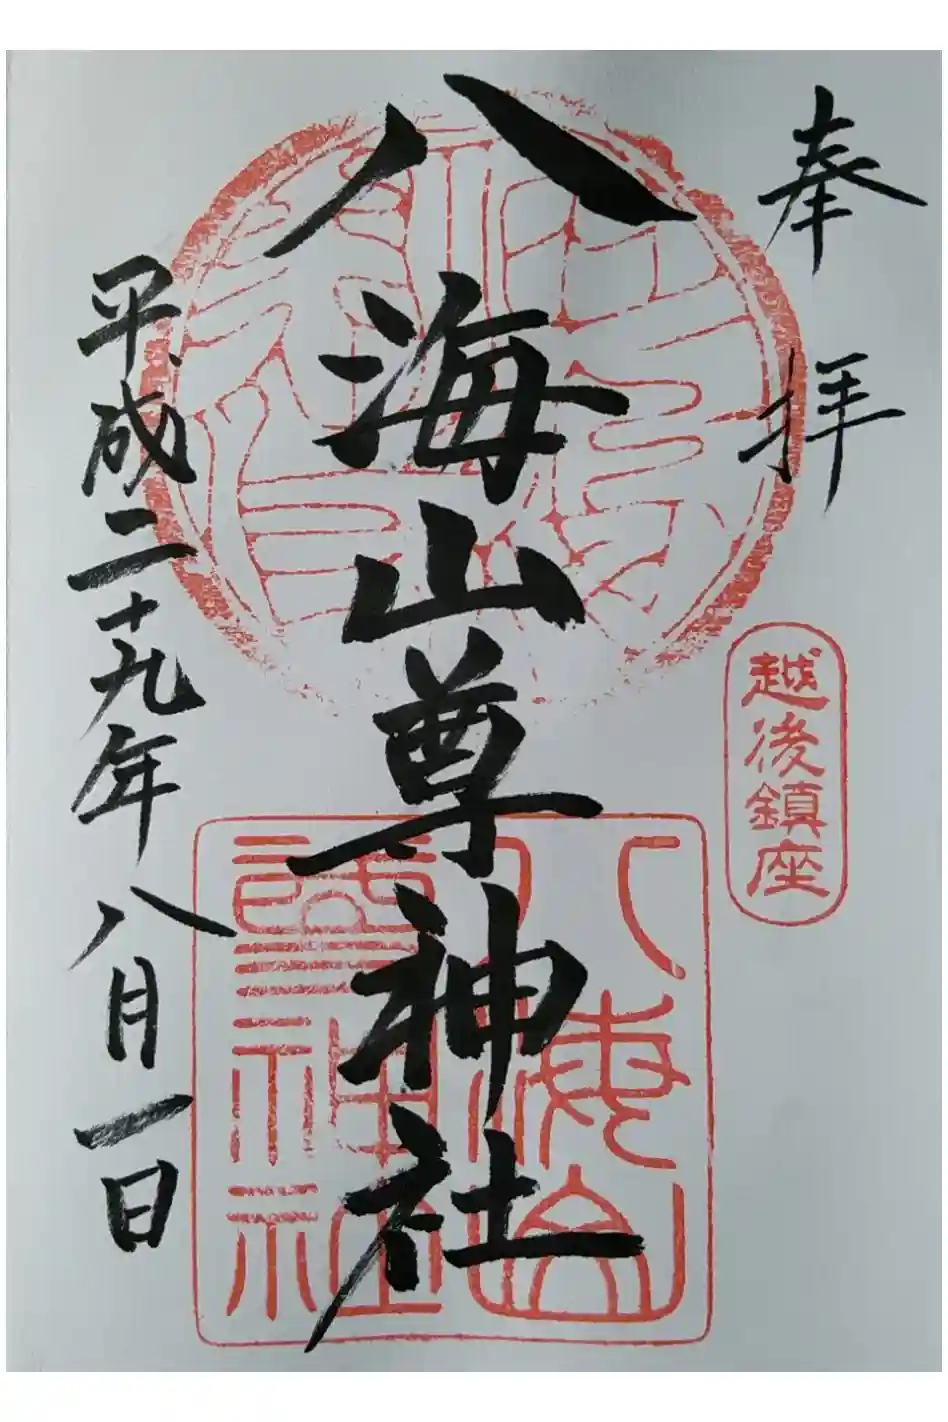 奉拝
越後鎮座
八海山尊神社
平成二十九年八月一日
八海山
尊神社